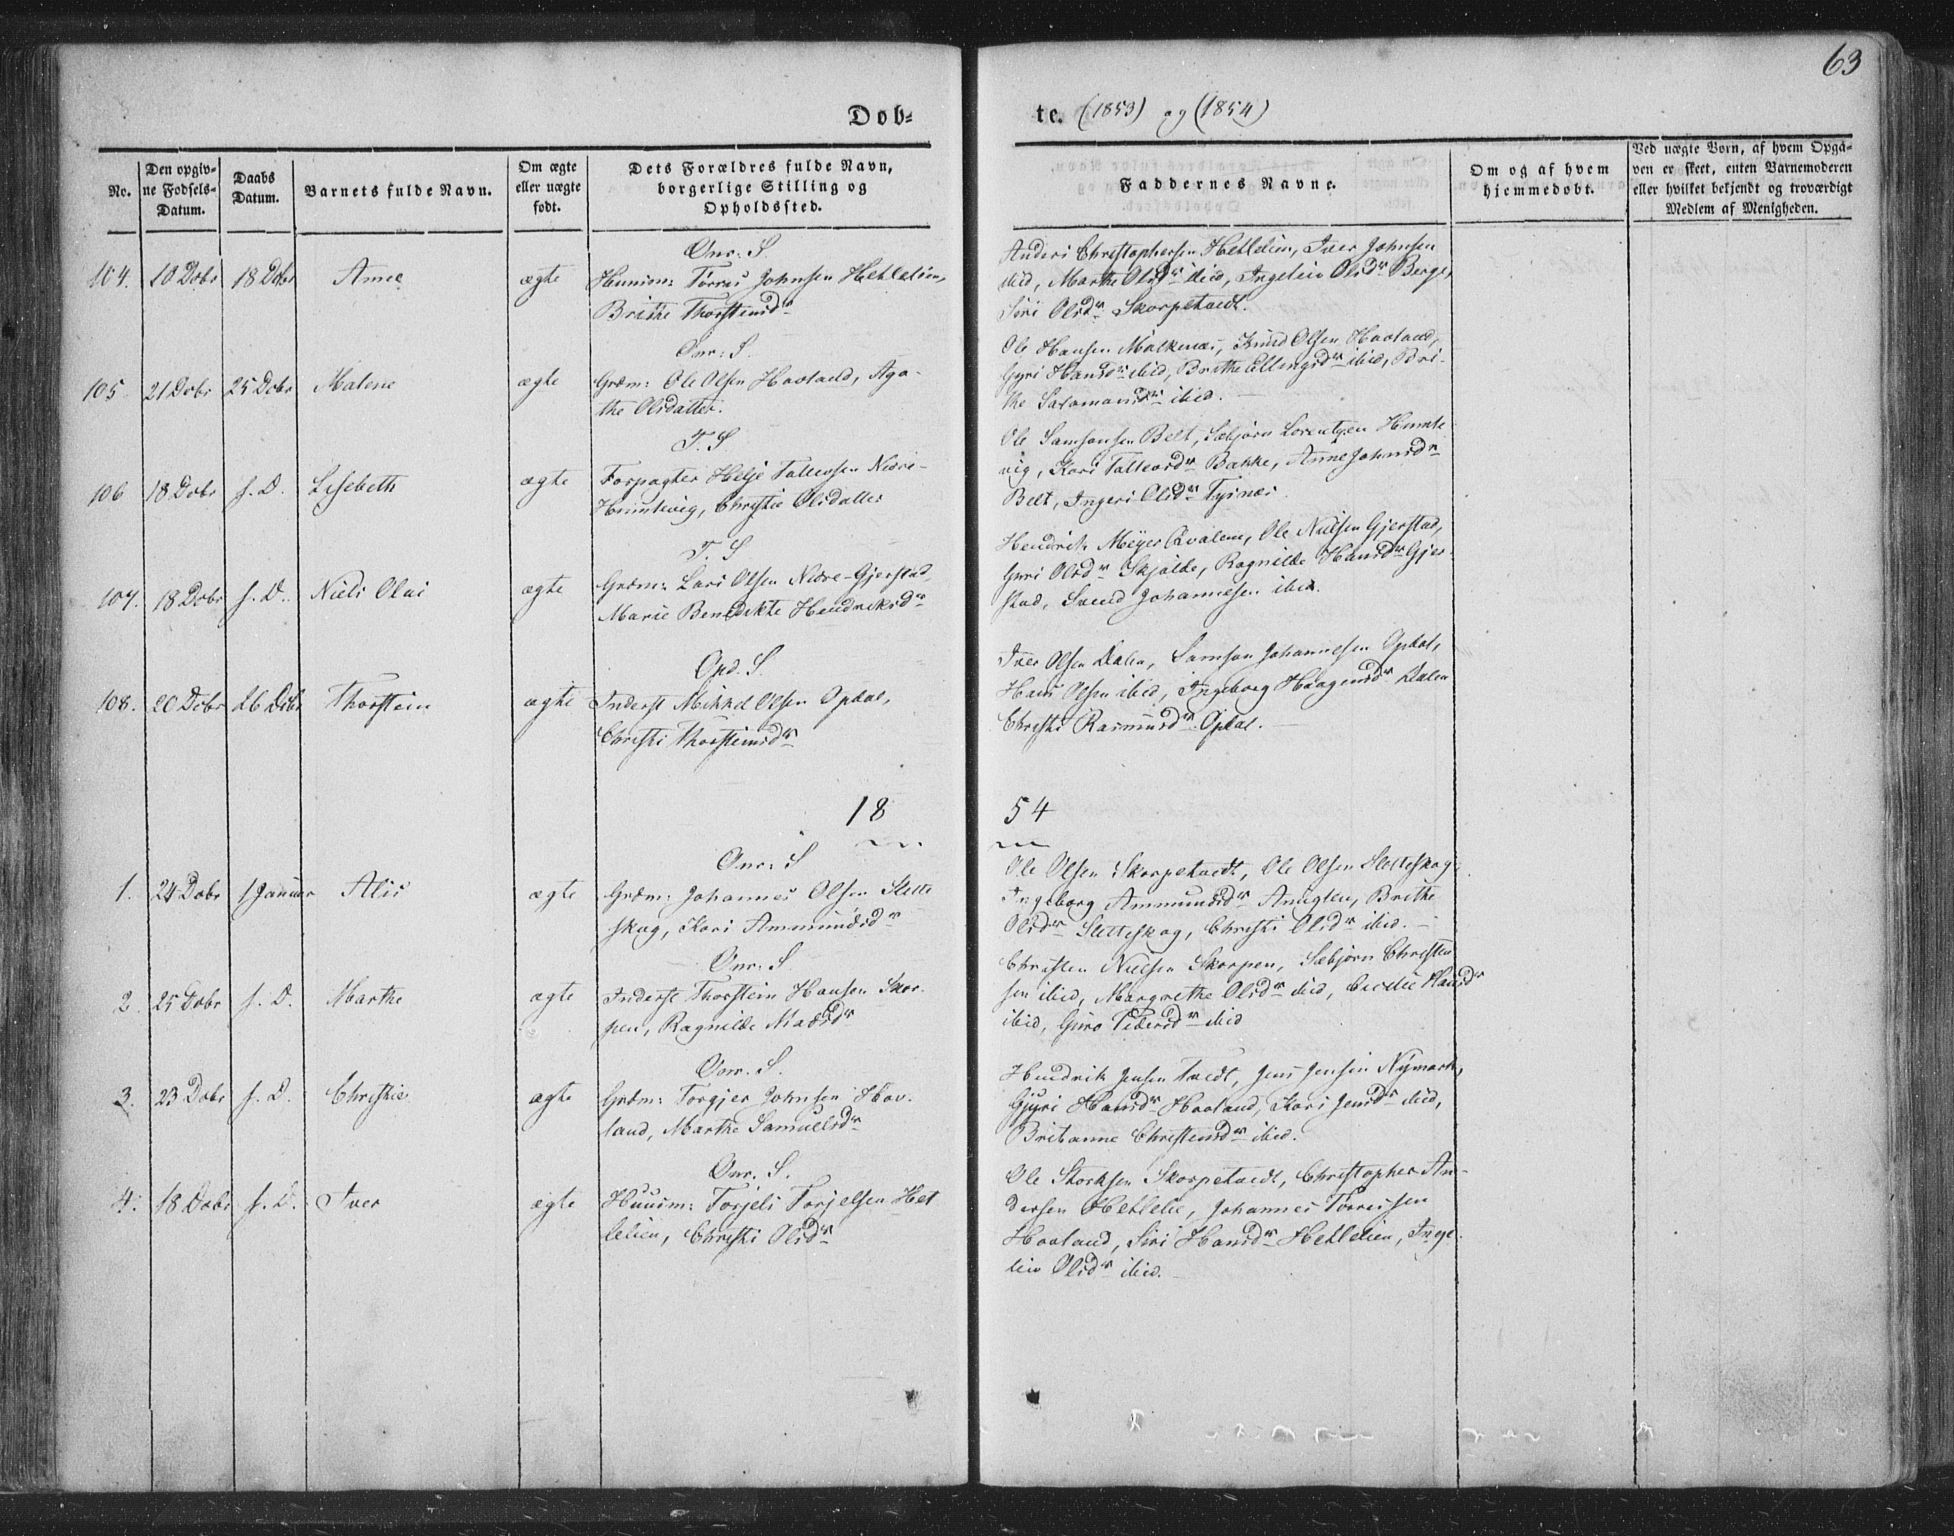 63
Døb-
te. (1853) og (1854)
No.
Den opgiv-
ne Fødsels-
Datum.
Daabs
Datum.
Barnets fulde Navn.
Om ægte
eller uægte
født.
Dets Forældres fulde Navn,
borgerlige Stilling og
Opholdssted.
Faddernes Navne.
Om og af hvem
hjemmedøbt.
Ved uægte Børn, af hvem Opga-
ven er skeet, enten Barnemoderen
eller hvilket bekjendt og troværdigt
Medlem af Menigheden.
Onr: S.
104. 10 Dcbr 18 Dcbr Anne ægte Huusm: Tørris Johnsen Hetlelien,
Brithe Thorsteinsdr
Anders Christophersen Hetlelien, Iver Johnsen
ibid, Marthe Olsdr ibid, Ingeleiv Olsdr Berge,
Siri Olsdr Skorpetvedt.
Onr: S.
105. 21 Dcbr 25 Dcbr Malene ægte Grdm: Ole Olsen Hovland, Aga-
the Olsdatter.
Ole Hansen Malkenæs, Knud Olsen Hovland,
Gyri Hansdr ibid, Brithe Ellingsdr ibid, Bri-
the Salamonsdr ibid.
T. S
106 18 Dcbr s. D. Lisebeth ægte Forpagter Helje Tollevsen Nedre-
Humlevig, Christie Olsdatter
Ole Samsonsen Belt, Sæbjørn Lorentzen Humle
vig, Kari Tollevsdr Bakke, Anne Johnsdr
Belt, Ingeri Olsdr Tysnæs.
T. S
107. 18 Dcbr s. D. Niels Olai ægte Grdm: Lars Olsen Nedre-Gjerstad,
Marie Benedikte Hendriksdr
Hendrik Meyer Qvalem, Ole Nielsen Gjerstad,
Guri Olsdr Skjolde, Ragnilde Hansdr Gjer
stad, Svend Johannesen ibid.
Opd. S.
108. 20 Dcbr 26 Dcbr Thorstein ægte Inderst Mikkel Olsen Opdal,
Christi Thorsteinsdr
Iver Olsen Dalen, Samson Johannesen Opdal,
Hans Olsen ibid, Ingeborg Haagensdr Dalen
Christi Rasmusdr Opdal.
18 54
Onr: S
1. 24 Dcbr 1 Januar Alis ægte Grdm: Johannes Olsen Slette
skog, Kari Ammundsdr
Ole Olsen Skorpetvedt, Ole Olsen Sletteskog
Ingeborg Ammundsdr Anuglen, Brithe
Olsdr Sletteskog, Christi Olsdr ibid.
Onr: S.
2. 25 Dcbr s. D. Marthe ægte Inderst Thorstein Hansen Skor-
pen, Ragnilde Madsdr
Christen Nielsen Skorpen, Sæbjørn Christen
sen ibid, Margrethe Olsdr ibid, Cicilie Hansdr
ibid, Guro Pedersdr ibid
Onr. S.
3. 23 Dcbr s. D. Christie ægte Grdm: Torgjer Johnsen Hov-
land, Marthe Samuelsdr
Hendrik Jensen Tvedt, Jens Jensen Nymark,
Gyri Hansdr Hovland, Kari Jensdr ibid,
Britanne Christensdr ibid.
Onr. S.
4. 18 Dcbr s. D. Iver ægte Huusm: Torjels Torjelsen Het
lelien, Christi Olsdr
Ole Storksen Skorpetvedt, Christopher An-
dersen Hetlelie, Johannes Tørrissen
Hovland, Siri Hansdr Hetlelien, Inge-
leiv Olsdr ibid.